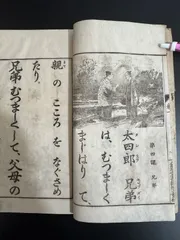 第四課 兄弟
太四郎 兄弟
は、むつましく
まじはりて、
親のこゝろをなぐさめ
たり、
兄弟むつましくして、父母の